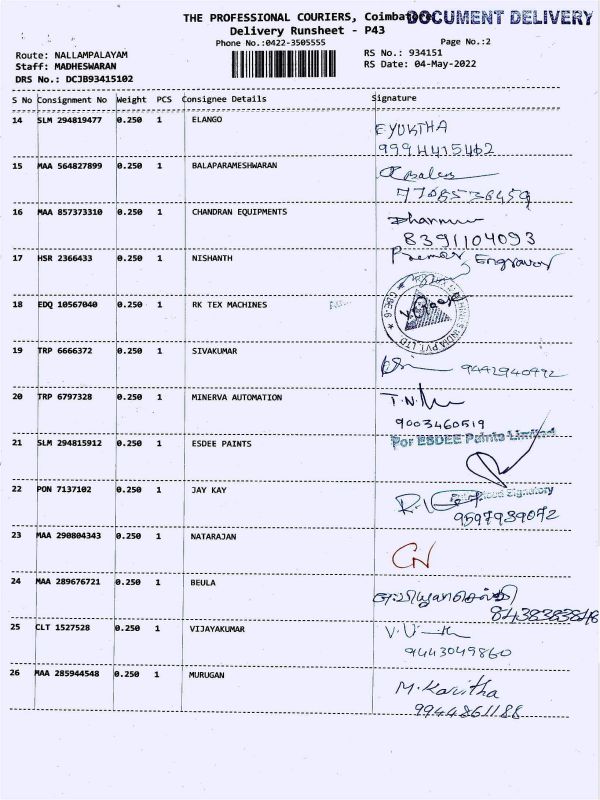 THE PROFESSIONAL COURIERS, Coimbatore
DOCUMENT DELIVERY
Delivery Runsheet - P43
Phone No.:0422-3505555
Page No.:2
Route: NALLAMPALAYAM
RS No.: 934151
Staff: MADHESWARAN
RS Date: 04-May-2022
DRS No.: DCJB93415102
S No Consignment No Weight PCS Consignee Details Signature
14 SLM 294819477 0.250 1 ELANGO
E.YUKTHA
9994415462
15 MAA 564827899 0.250 1 BALAPARAMESHWARAN
7708536459
16 MAA 857373310 0.250 1 CHANDRAN EQUIPMENTS
8391104093
17 HSR 2366433 0.250 1 NISHANTH
Engravor
18 EDQ 10567040 0.250 1 RK TEX MACHINES
INDIA PVT. LTD
CBE-6
19 TRP 6666372 0.250 1 SIVAKUMAR
9442940492
20 TRP 6797328 0.250 1 MINERVA AUTOMATION
T.N.
9003460519
21 SLM 294815912 0.250 1 ESDEE PAINTS
For ESDEE Paints Limited
Signatory
22 PON 7137102 0.250 1 JAY KAY
9597939072
23 MAA 290804343 0.250 1 NATARAJAN
CN
24 MAA 289676721 0.250 1 BEULA
8438383848
25 CLT 1527528 0.250 1 VIJAYAKUMAR
9443049860
26 MAA 285944548 0.250 1 MURUGAN
M. Karitha
9944861188